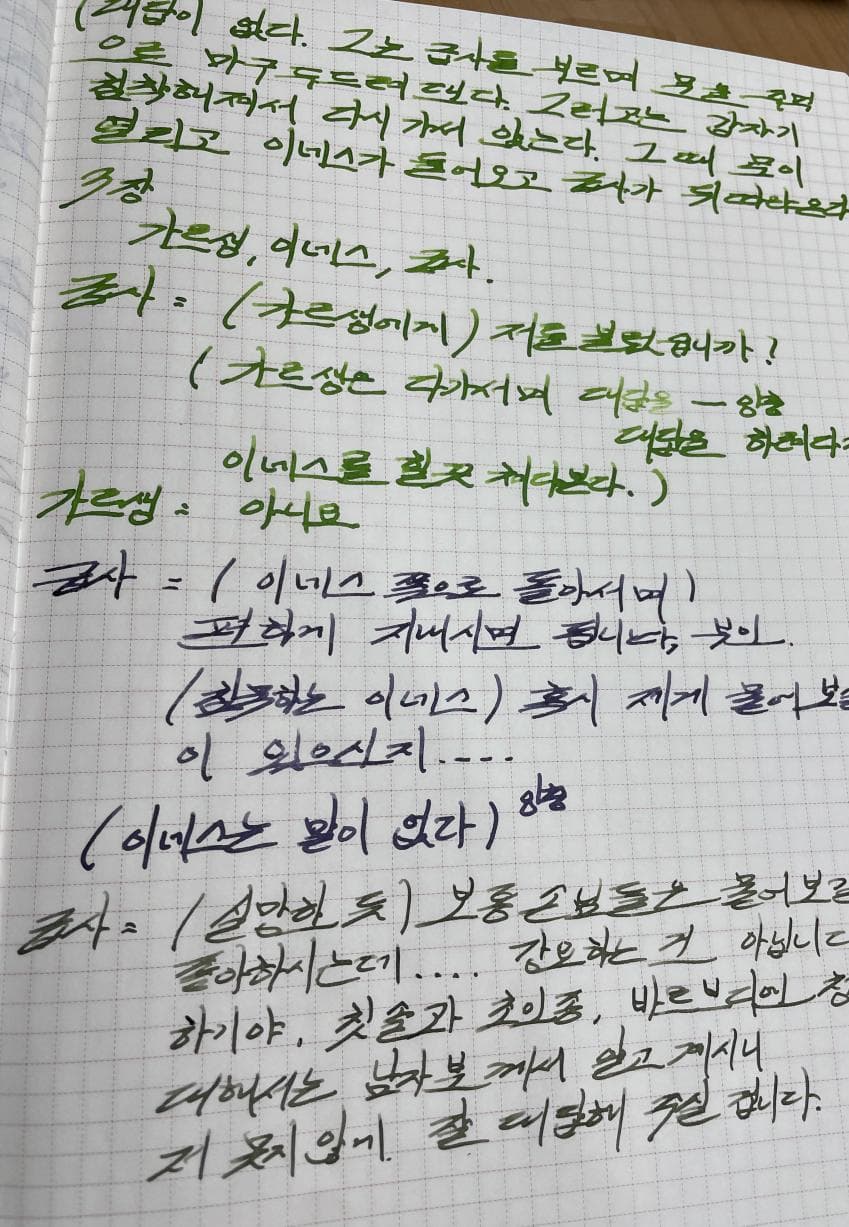 (대답이 없다. 그는 급사를 부르며 문을 주먹
으로 마구 두드려댄다. 그러고는 갑자기
침착해져서 다시 가서 앉는다. 그 때 문이
열리고 이네스가 들어오고 급사가 뒤따라온다
3장
가르생, 이네스, 급사.
급사 = (가르생에게) 저를 불렀습니까?
(가르생은 다가서며 대답을 — 양흥
대답을 하려다가
이네스를 힐끗 쳐다본다.)
가르생 = 아니요
급사 = (이네스 쪽으로 돌아서며)
편하게 지내시면 됩니다, 부인.
(침묵하는 이네스) 혹시 제게 물어보실
이 있으신지....
(이네스는 말이 없다)
급사 = (실망한 듯) 보통 손님들은 물어보길
좋아하시는데.... 강요하는 거 아닙니다
하기야, 칫솔과 초인종, 바르브디엔 청
대해서는 남자분께서 알고 계시니
저 못지않게 잘 대답해 주실 겁니다.